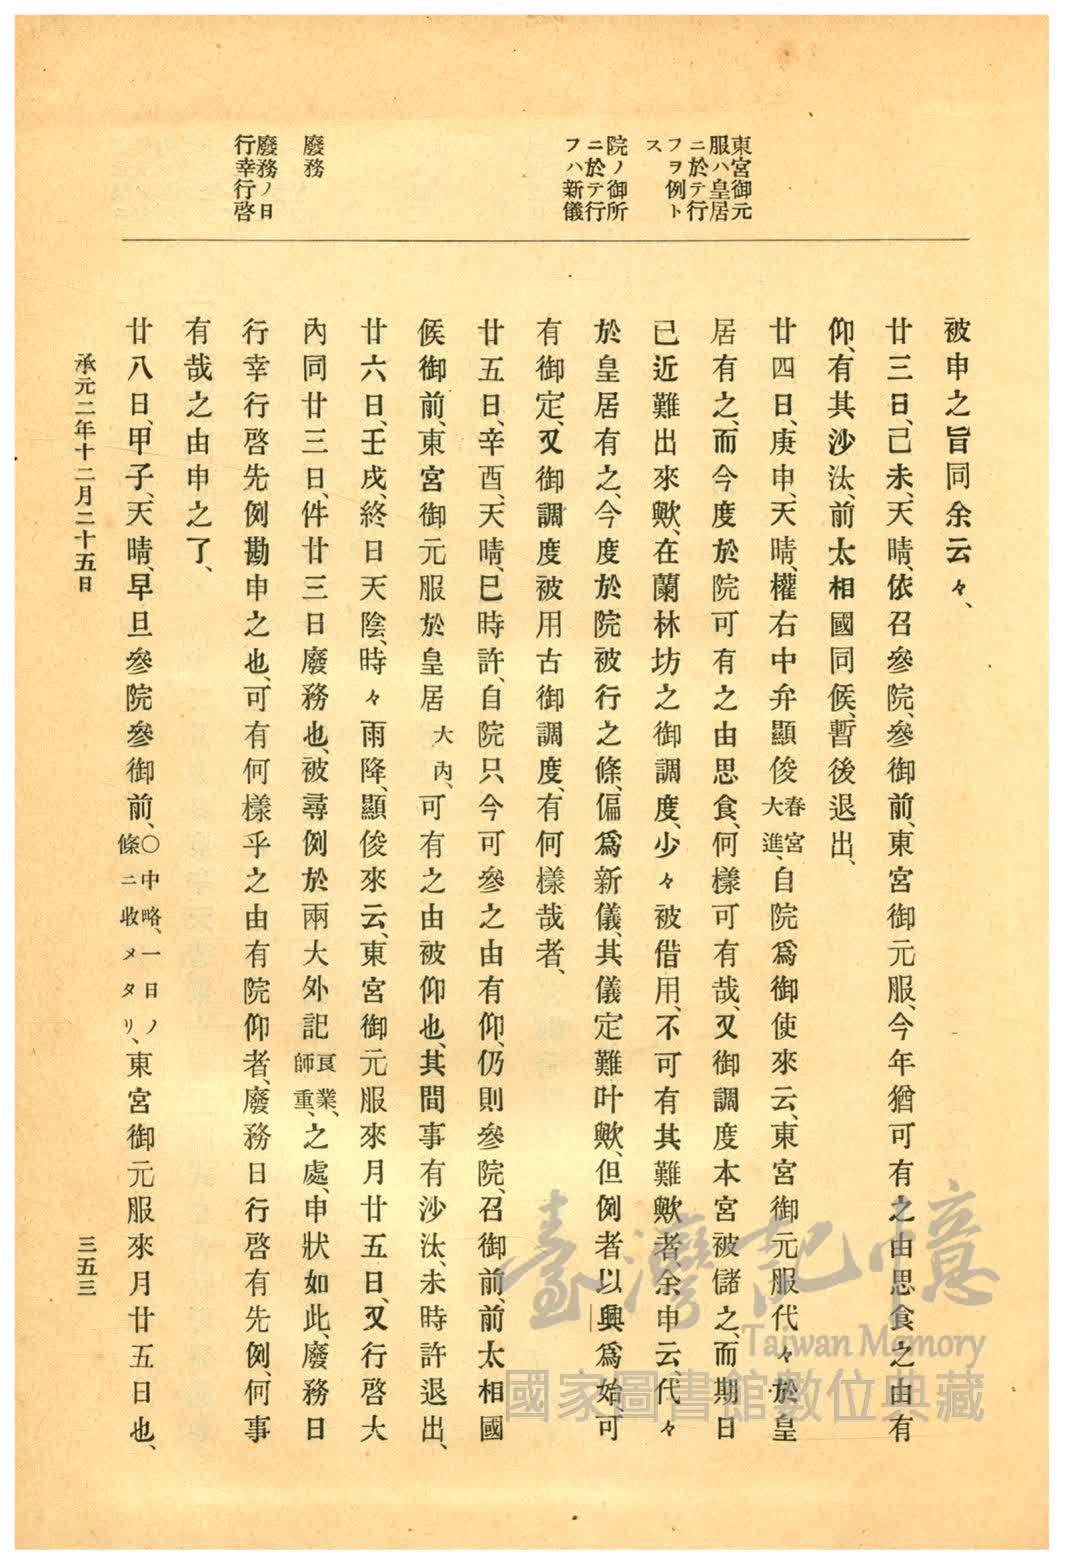 東宮御元
服ハ皇居
ニ於テ行
フヲ例ト
ス
院ノ御所
ニ於テ行
フハ新儀
廢務
廢務ノ日
行幸行啓
被申之旨同余云々、
廿三日、己未、天晴、依召參院、參御前、東宮御元服、今年猶可有之由思食之由有
仰、有其沙汰、前太相國同候、暫後退出、
廿四日、庚申、天晴、權右中弁顯俊春宮大進、自院爲御使來云、東宮御元服代々於皇
居有之、而今度於院可有之由思食、何樣可有哉、又御調度本宮被儲之、而期日
已近難出來歟、在蘭林坊之御調度、少々被借用、不可有其難歟者、余申云、代々
於皇居有之、今度於院被行之條、偏爲新儀、其儀定難叶歟、但例者以興爲始、可
有御定、又御調度被用古御調度、有何樣哉者、
廿五日、辛酉、天晴、巳時許、自院只今可參之由有仰、仍則參院、召御前、前太相國
候御前、東宮御元服於皇居大內、可有之由被仰也、其間事有沙汰、未時許退出、
廿六日、壬戌、終日天陰、時々雨降、顯俊來云、東宮御元服來月廿五日、又行啓大
內同廿三日、件廿三日廢務也、被尋例於兩大外記良業、師重、之處、申狀如此、廢務日
行幸行啓先例勘申之也、可有何樣乎之由有院仰者、廢務日行啓有先例、何事
有哉之由申之了、
廿八日、甲子、天晴、早旦參院參御前、〇中略、一日ノ條ニ收メタリ、東宮御元服來月廿五日也、
承元二年十二月二十五日
三五三
臺灣記憶
Taiwan Memory
國家圖書館數位典藏